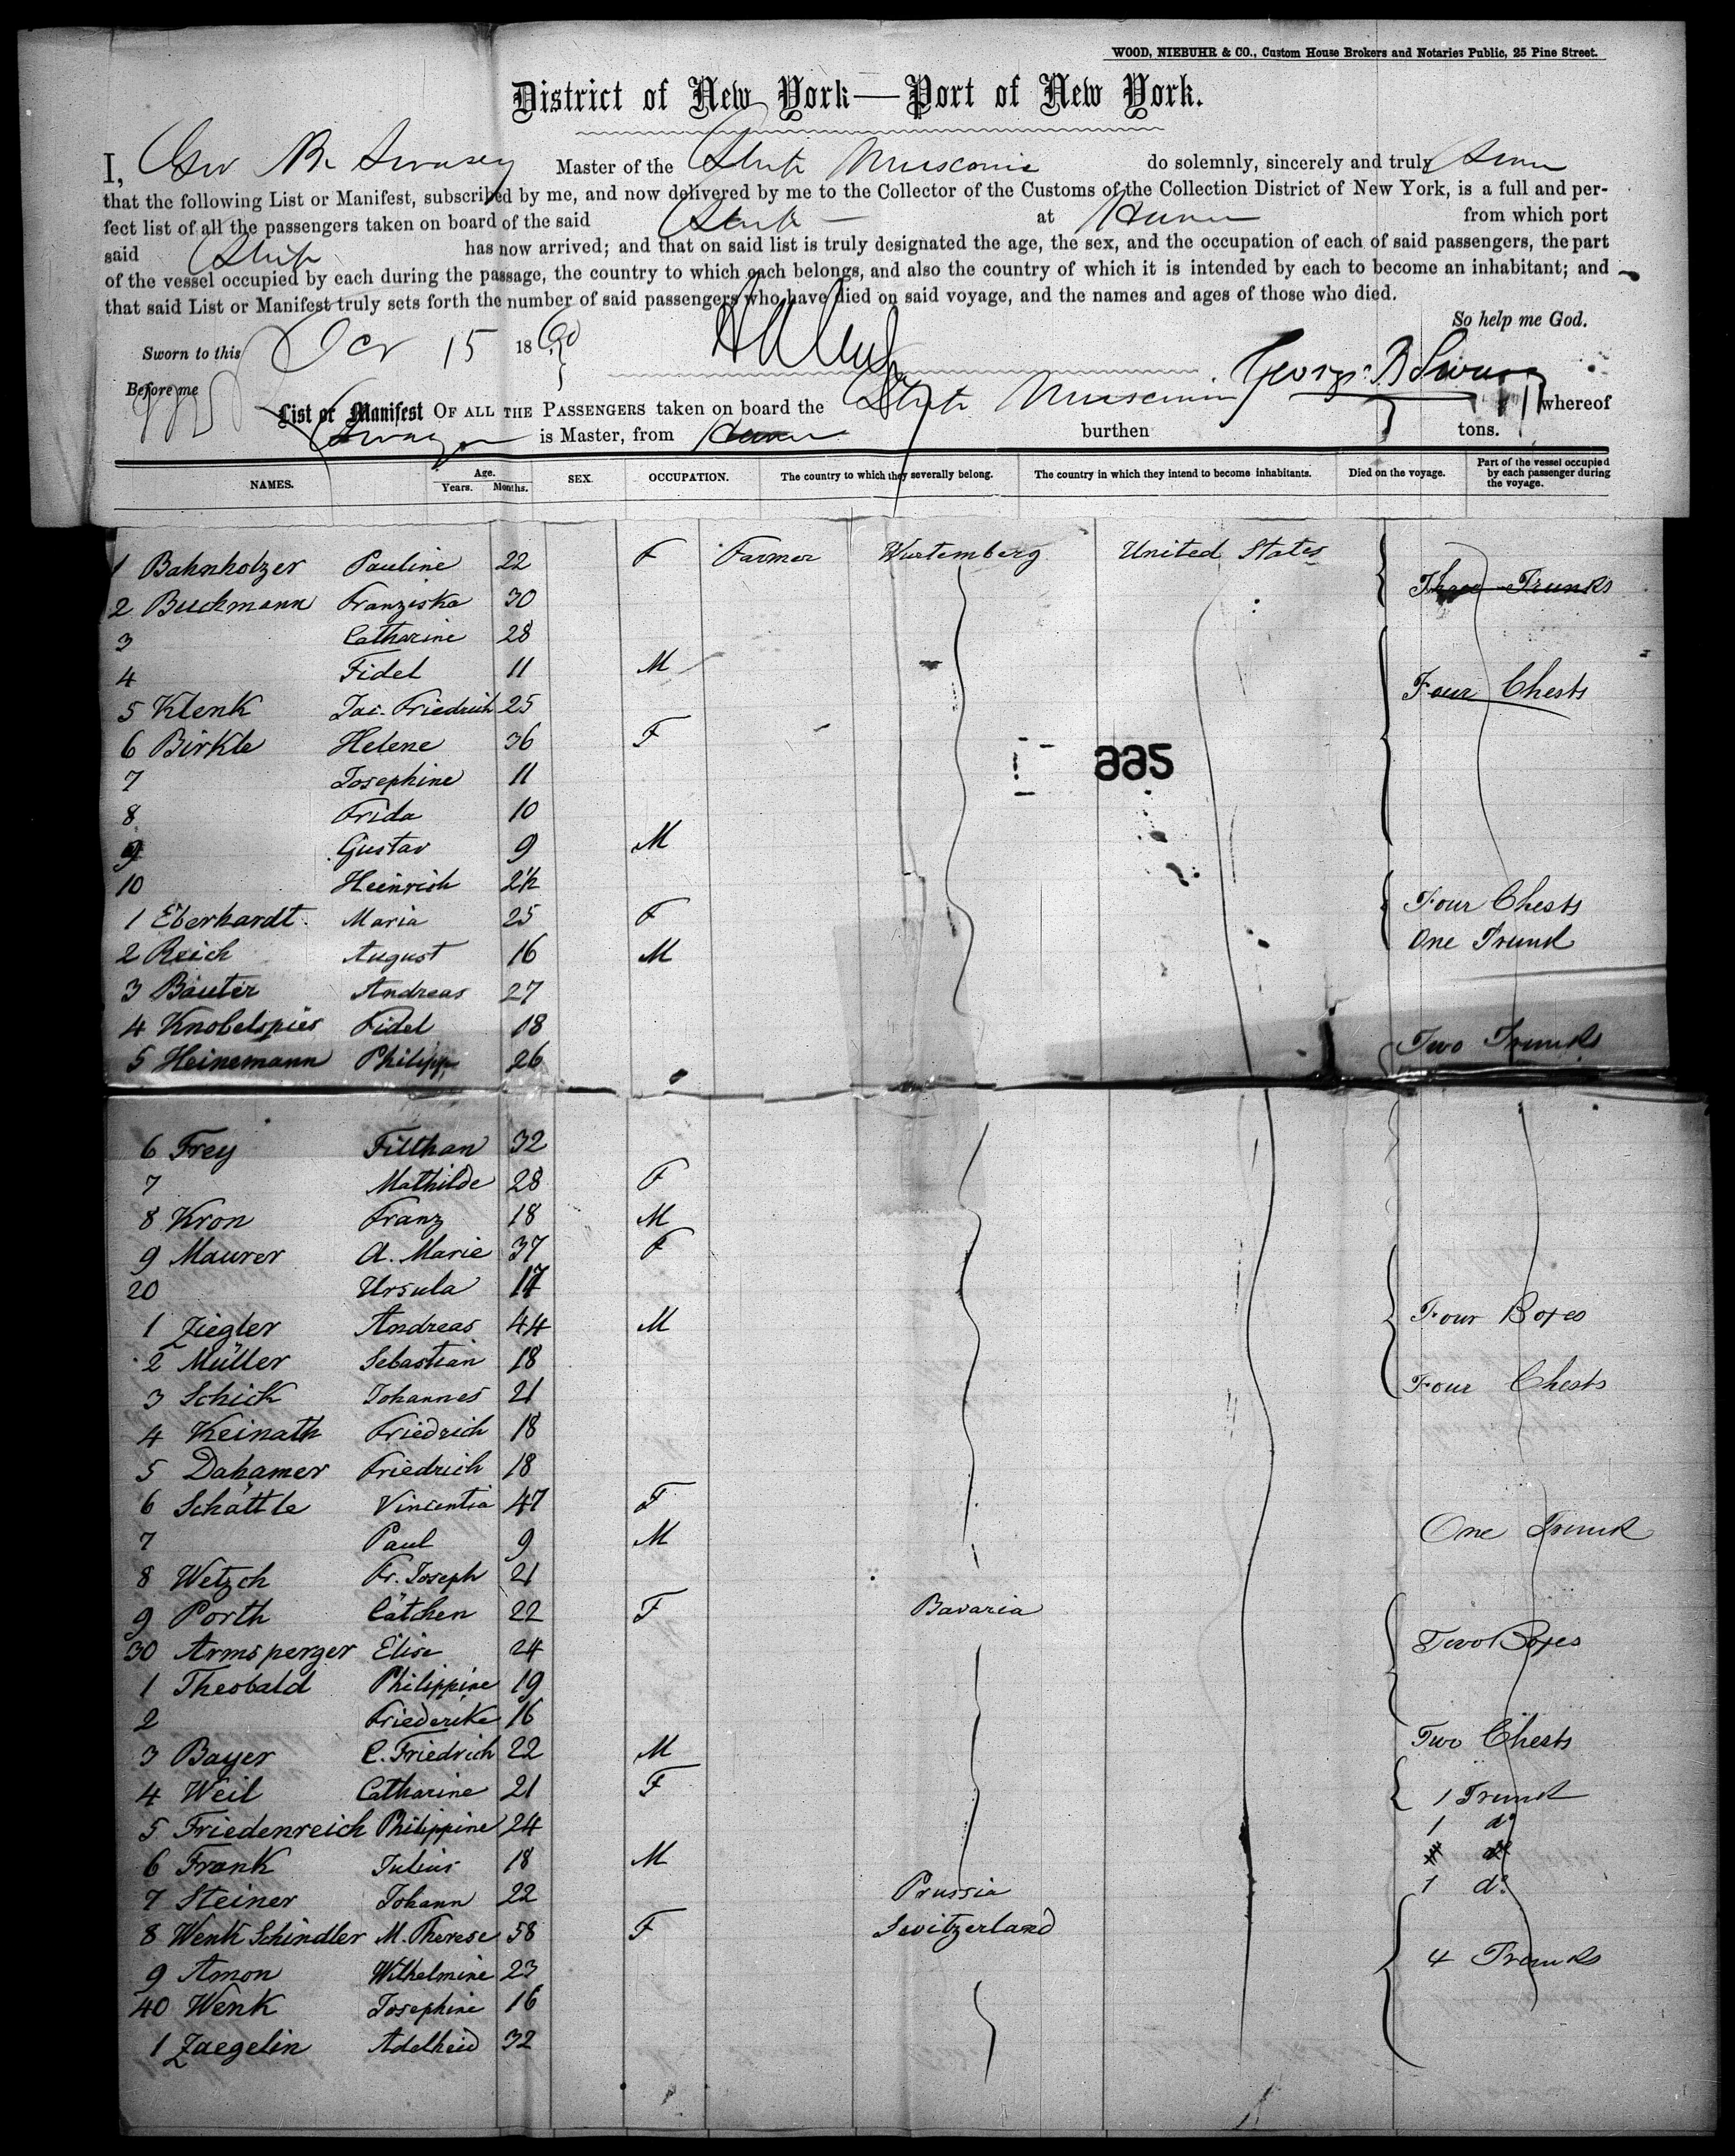 WOOD, NIEBUHR & CO., Custom House Brokers and Notaries Public, 25 Pine Street.
District of New York—Port of New York.
I, Geo B. Swasey Master of the Ship Musconus do solemnly, sincerely and truly swear
that the following List or Manifest, subscribed by me, and now delivered by me to the Collector of the Customs of the Collection District of New York, is a full and per-
fect list of all the passengers taken on board of the said Ship at Havre from which port
said Ship has now arrived; and that on said list is truly designated the age, the sex, and the occupation of each of said passengers, the part
of the vessel occupied by each during the passage, the country to which each belongs, and also the country of which it is intended by each to become an inhabitant; and
that said List or Manifest truly sets forth the number of said passengers who have died on said voyage, and the names and ages of those who died.
So help me God.
Sworn to this Oct 15 1860
George B Swasey
Before me
List or Manifest OF ALL THE PASSENGERS taken on board the Ship whereof
Swazey is Master, from Havre burthen tons.
NAMES. Age. Years. Months. SEX. OCCUPATION. The country to which they severally belong. The country in which they intend to become inhabitants. Died on the voyage. Part of the vessel occupied by each passenger during the voyage.
1 Bahnholzer Pauline 22 F Farmer Wurtemberg United States
Three Trunks
2 Buckmann Franziska 30
3 Catharine 28
4 Fidel 11 M
Four Chests
5 Klenk Jac. Friedrich 25
6 Birkle Helene 36 F
995
7 Josephine 11
8 Frida 10
9 Gustav 9 M
10 Heinrich 2½
Four Chests
1 Eberhardt Maria 25 F
One Trunk
2 Reich August 16 M
3 Bäuter Andreas 27
4 Knobelspies Fidel 18
Two Trunks
5 Heinemann Philipp 26
6 Frey Filthan 32
7 Mathilde 28 F
8 Kron Franz 18 M
9 Maurer A. Marie 37 F
20 Ursula 17
1 Ziegler Andreas 44 M Four Boxes
2 Müller Sebastian 18
3 Schick Johannes 21 Four Chests
4 Keinath Friedrich 18
5 Dahamer Friedrich 18
6 Schättle Vincentia 47 F
One Trunk
7 Paul 9 M
8 Wetzch Fr. Joseph 21
9 Porth Cätchen 22 F Bavaria
30 Armsperger Elise 24 Two Boxes
1 Theobald Philippine 19
2 Friederike 16
3 Bayer C. Friedrich 22 M Two Chests
4 Weil Catharine 21 F 1 Trunk
5 Friedenreich Philippine 24 1 do
6 Frank Julius 18 M
7 Steiner Johann 22 Prussia 1 do
8 Wenk Schindler M. Therese 58 F Switzerland
9 Amon Wilhelmine 23 4 Trunks
40 Wenk Josephine 16
1 Zaegelin Adelheid 32